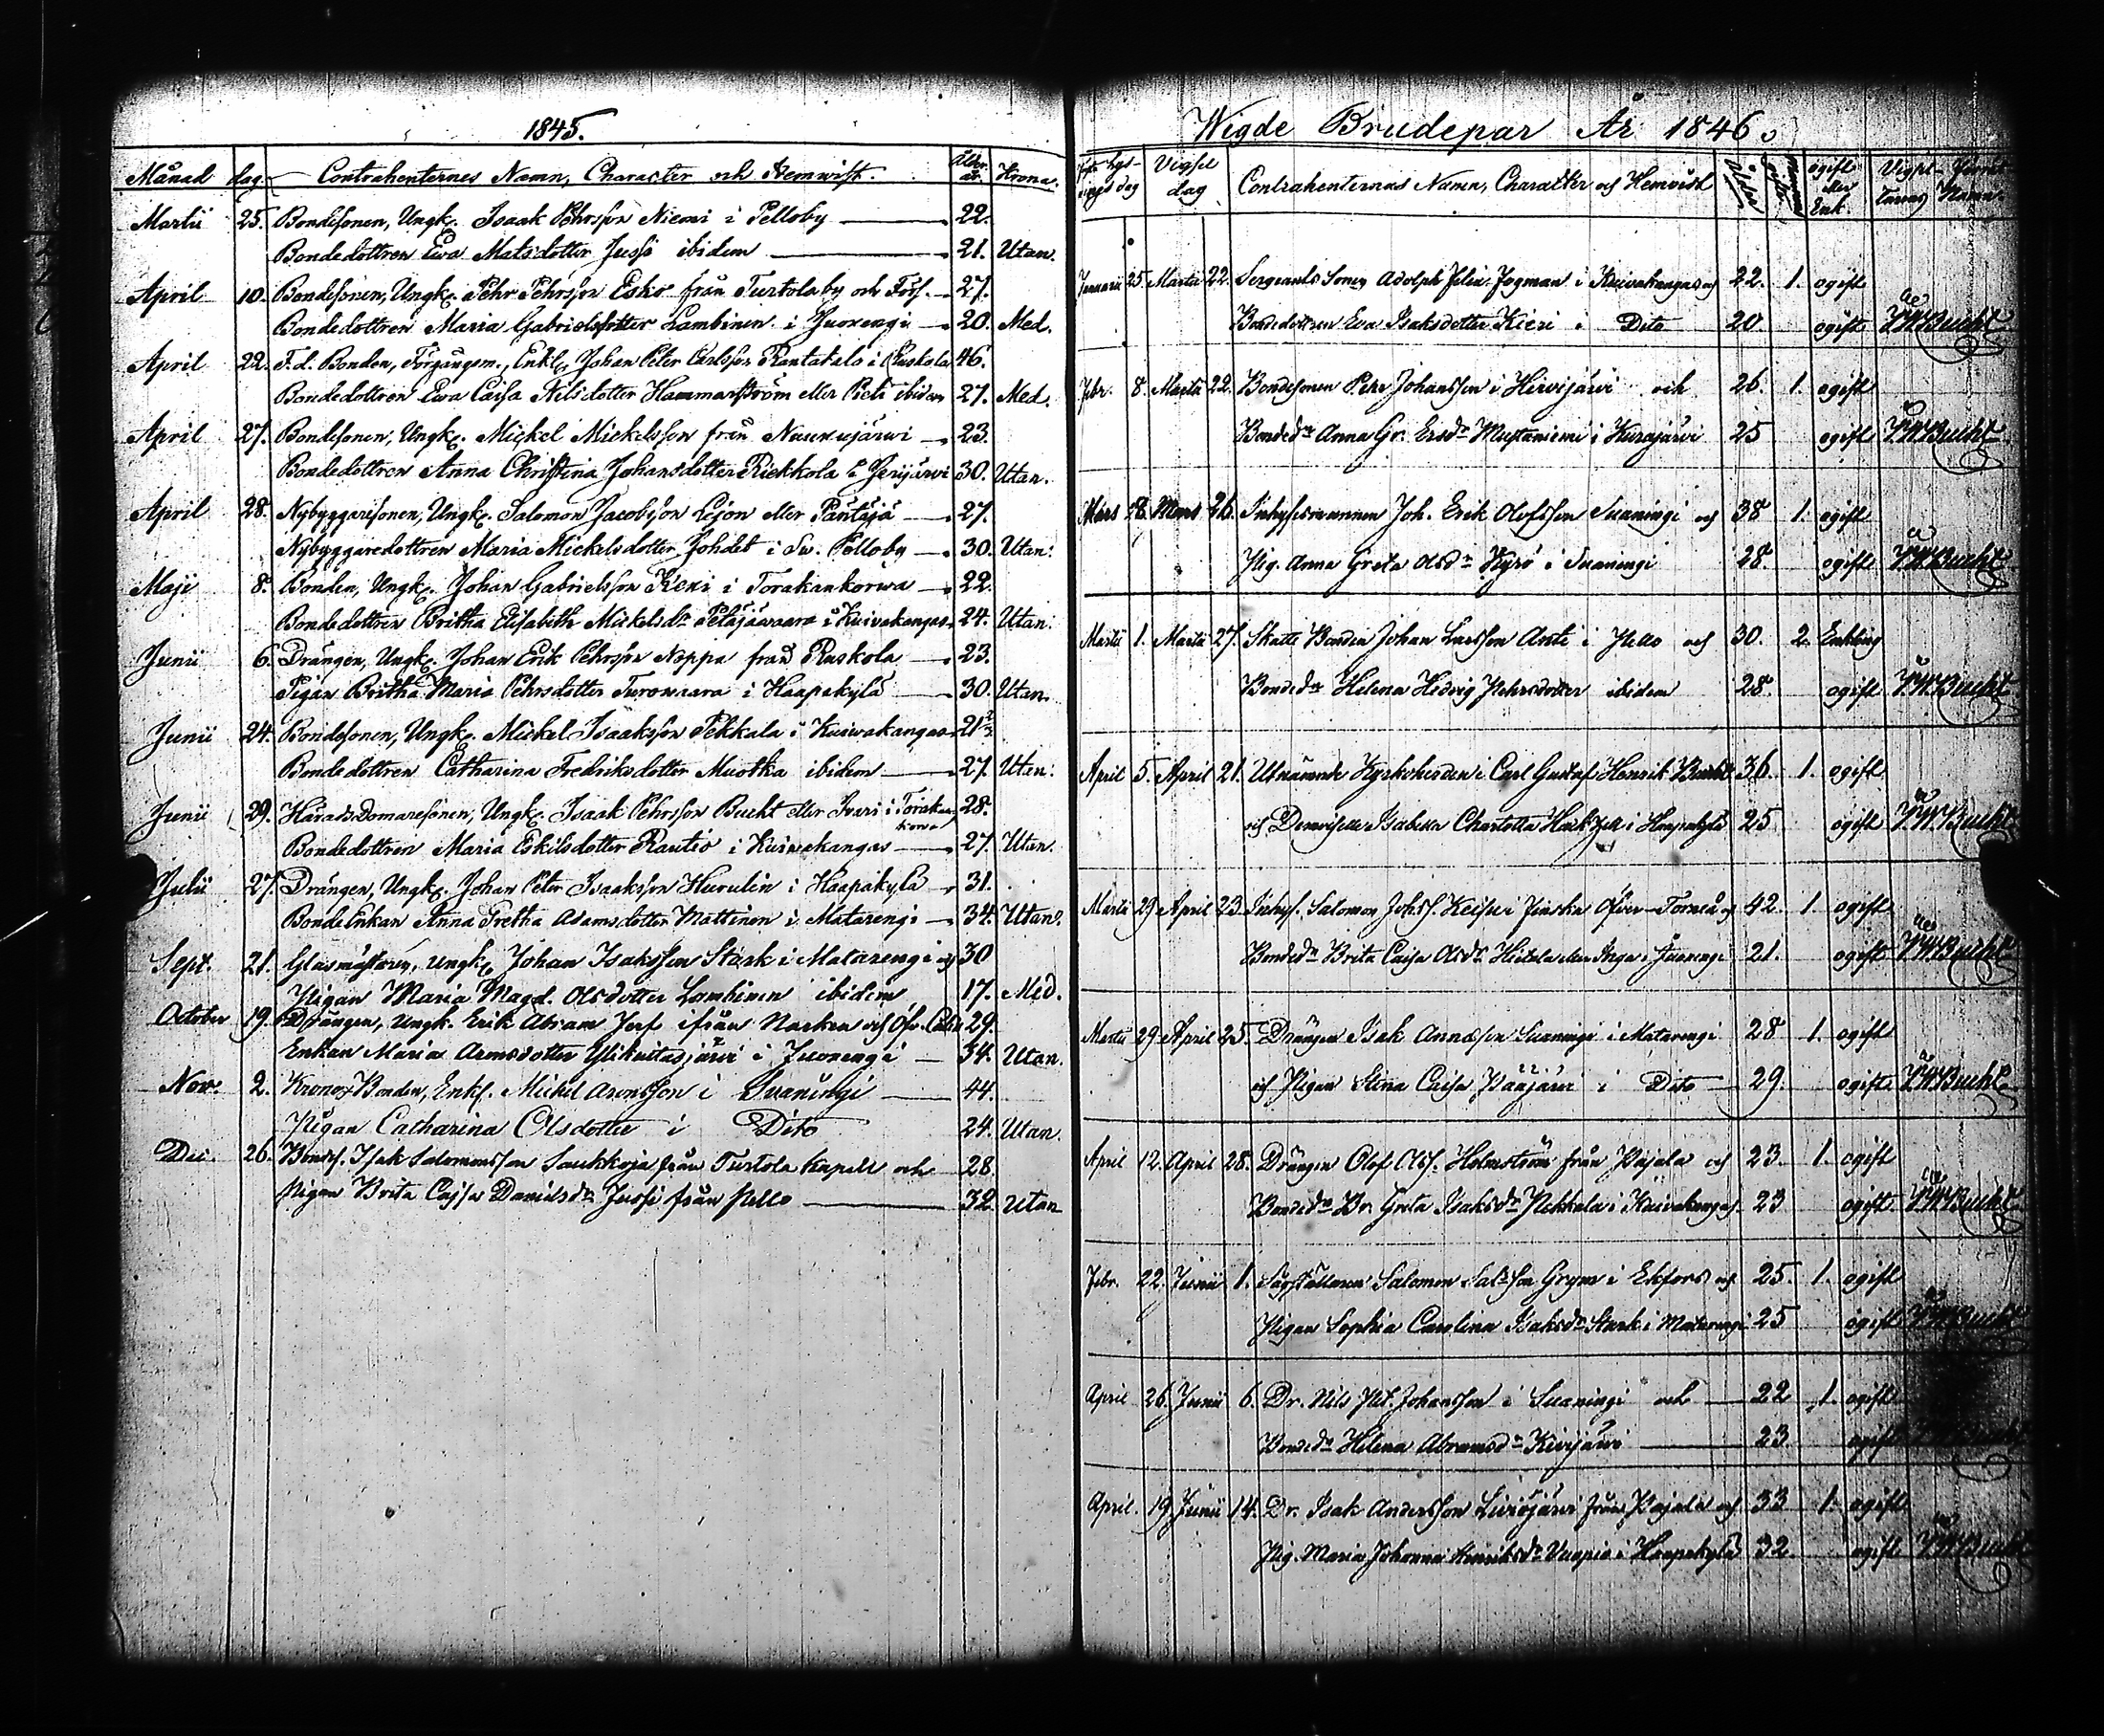 1845.
Månad dag. Contrahenternes Namn, Character och Hemwist. Ålder år. Krona.
Martii 25. Bondesonen, Ungk. Isaak Pehrsson Niemi i Pelloby 22.
Bondedottren Ewa Matsdotter Jussi ibidem 21. Utan.
April 10. Bondesonen, Ungk. Pehr Pehrsson Esko från Turtolaby och Förs. 27.
Bondedottren Maria Gabrielsdotter Lambinen i Juoxengi 20. Med.
April 22. F.d. Bonden, Förgångsm., Enkl. Johan Peter Carlsson Rantatalo i Ruskola 46.
Bondedottren Ewa Caisa Nilsdotter Hammarström eller Pieti ibidem 27. Med.
April 27. Bondesonen, Ungk. Mickel Mickelsson från 23.
Bondedottren Anna Christina Johansdotter Riekkola i Jerijärwi 30. Utan.
April 28. Nybyggaresonen, Ungk. Salomon Jacobsson Lejon eller Pantsjä 27.
Nybyggaredottren Maria Mickelsdotter Johdet i Sv. Pelloby 30. Utan.
Maji 8. Bonden, Ungk. Johan Gabrielsson Kexi i Torakankorwa 22.
Bondedottren Britha Elisabeth Mickelsdr Petäjäwaara i Kuiwakangas 24. Utan.
Junii 6. Drängen, Ungk. Johan Erik Pehrsson Noppa från Ruskola 23.
Pigan Britha Maria Pehrsdotter Turowaara i Haapakylä 30. Utan.
Junii 24. Bondesonen, Ungk. Mickel Isaaksson Pekkala i Kuiwakangas 21
Bondedottren Catharina Fredriksdotter Muotka ibidem 27. Utan.
Junii 29. HäradsDomaresonen, Ungk. Isaak Pehrsson Bucht eller Ivari i Torakankorwa 28.
Bondedottren Maria Eskilsdotter Rautio i Kuiwakangas 27. Utan.
Julii 27. Drängen, Ungk. Johan Peter Isaaksson Hurulin i Haapakylä 31.
BondeEnkan Anna Gretha Adamsdotter Mattinen i Matarengi 34. Utan.
Sept. 21. Glasmästaren, ungk. Johan Isaksson Stark i Matarengi och 30
Pigan Maria Magd. Olsdotter Lambinen ibidem 17. Med.
October 19. Drängen, Ungk. Erik Abram Jerf ifrån Narken och Öfv. Calix 29.
Enkan Maria Aronsdotter Ylikuitasjärvi i Juoxengi 34. Utan.
Nov. 2. KronoBonden, Enkl. Mickel Aronsson i Svanängi 44.
Pigan Catharina Olsdotter i Dito 24. Utan.
Dec. 26. Bondes. Isak Salomonsson Saukkoja från Turtola Kapell och 28.
Pigan Brita Cajsa Danielsdr Jussi från Pello 32. Utan
Wigde Brudepar År 1846.
Lysningsdag Vigsel dag Contrahenternas Namn, Charakter och Hemvist Ålder ogift eller Enk. Namn
Januarii 25. Martii 22. Sergeants Sonen Adolph Felix Fogman i Kuivakangas och 22. 1. ogift
Bondedottren Eva Isaksdotter Kieri i Dito 20 ogift Bucht
Febr. 8. Martii 22. Bondesonen Pehr Johansson i Hirvijärvi och 26. 1. ogift
Bondedr Anna Gr. Ersdr Mustaniemi i Kurajärvi 25 ogift Bucht
Mars 8. Mars 26. Inhysesmannen Joh. Erik Olofsson Svaningi och 38 1. ogift
Pig. Anna Greta Olsdr Kyrö i Svaningi 28. ogift Bucht
Martii 1. Martii 27. Skatte Bonden Johan Larsson Anti i Pello och 30. 2. Enkling
Bondedr Helena Hedvig Pehrsdotter ibidem 28. ogift Bucht
April 5. April 21. Utnämnde Kyrkoherden Carl Gustaf Henrik Bucht 36. 1. ogift
och Demoiselle Isabella Charlotta Hackzell i Haapakylä 25 ogift Bucht
Martii 29. April 23. Inhys. Salomon Johss. Keisu i Finska Öfver-Torneå och 42. 1. ogift
Bondedr Brita Caisa Olsdr Hietala i Juoxengi 21. ogift Bucht
Martii 29. April 25. Drängen Isak Svaningi i Matarengi 28 1. ogift
och Pigan Stina Caisa Pääjärvi i Dito 29. ogift Bucht
April 12. April 28. Drängen Olof Olss. Holmström från Pajala och 23. 1. ogift
Bondedr Br. Greta Isaksdr Pekkala i Kuivakangas 23 ogift Bucht
Febr. 22. Junii 1. Salomon Salsson Grym i Ekfors och 25. 1. ogift
Pigan Sophia Carolina Isaksdr Stark i Matarengi 25 ogift Bucht
April 26. Junii 6. Dr. Nils Pet. Johansson i Svaningi och 22 1. ogift
Bondedr Helena Abramsdr Kivijärvi 23 ogift
April 19. Junii 14. Dr. Isak Andersson Liviöjärvi från Pajala och 33 1. ogift
Pig. Maria Johanna Henriksdr Vuopio i Haapakylä 32. ogift Bucht